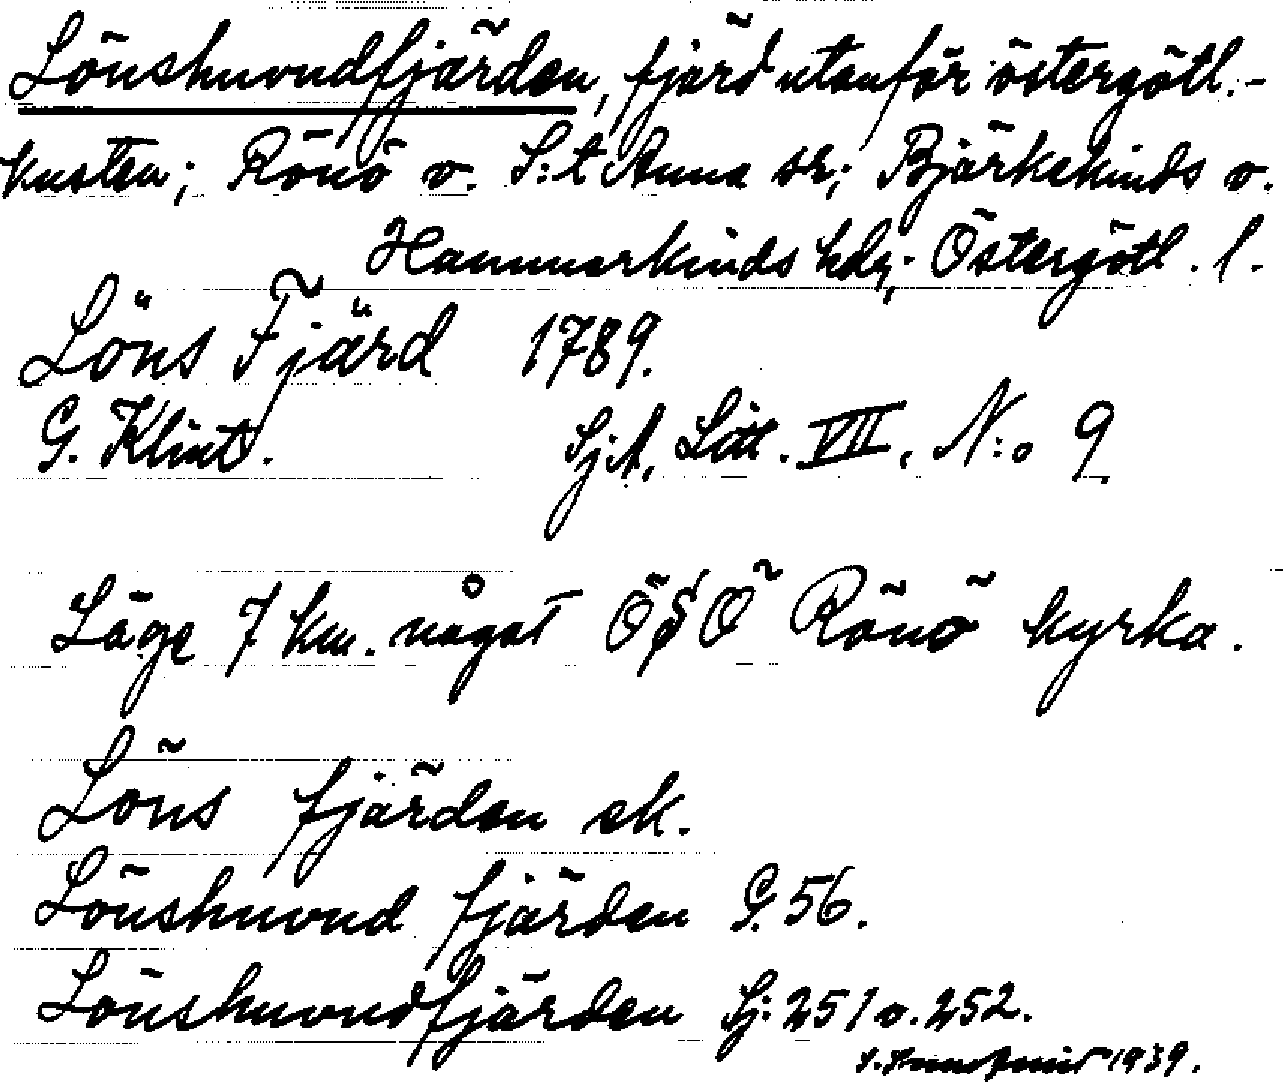 Lönshuvudfjärden, fjärd utanför östergötl.-
kusten; Rönö o. S:t Anna sr; Björkekinds o.
Hammarkinds hdr; Östergötl. l.
Löns Fjärd 1789.
G. Klint. Sj.A. Litt. VII, N:o 9
Läge 7 km. något ÖSÖ Rönö kyrka.
Löns fjärden ek.
Lönshuvud fjärden G. 56.
Lönshuvudfjärden Sj: 251 o. 252.
1939.